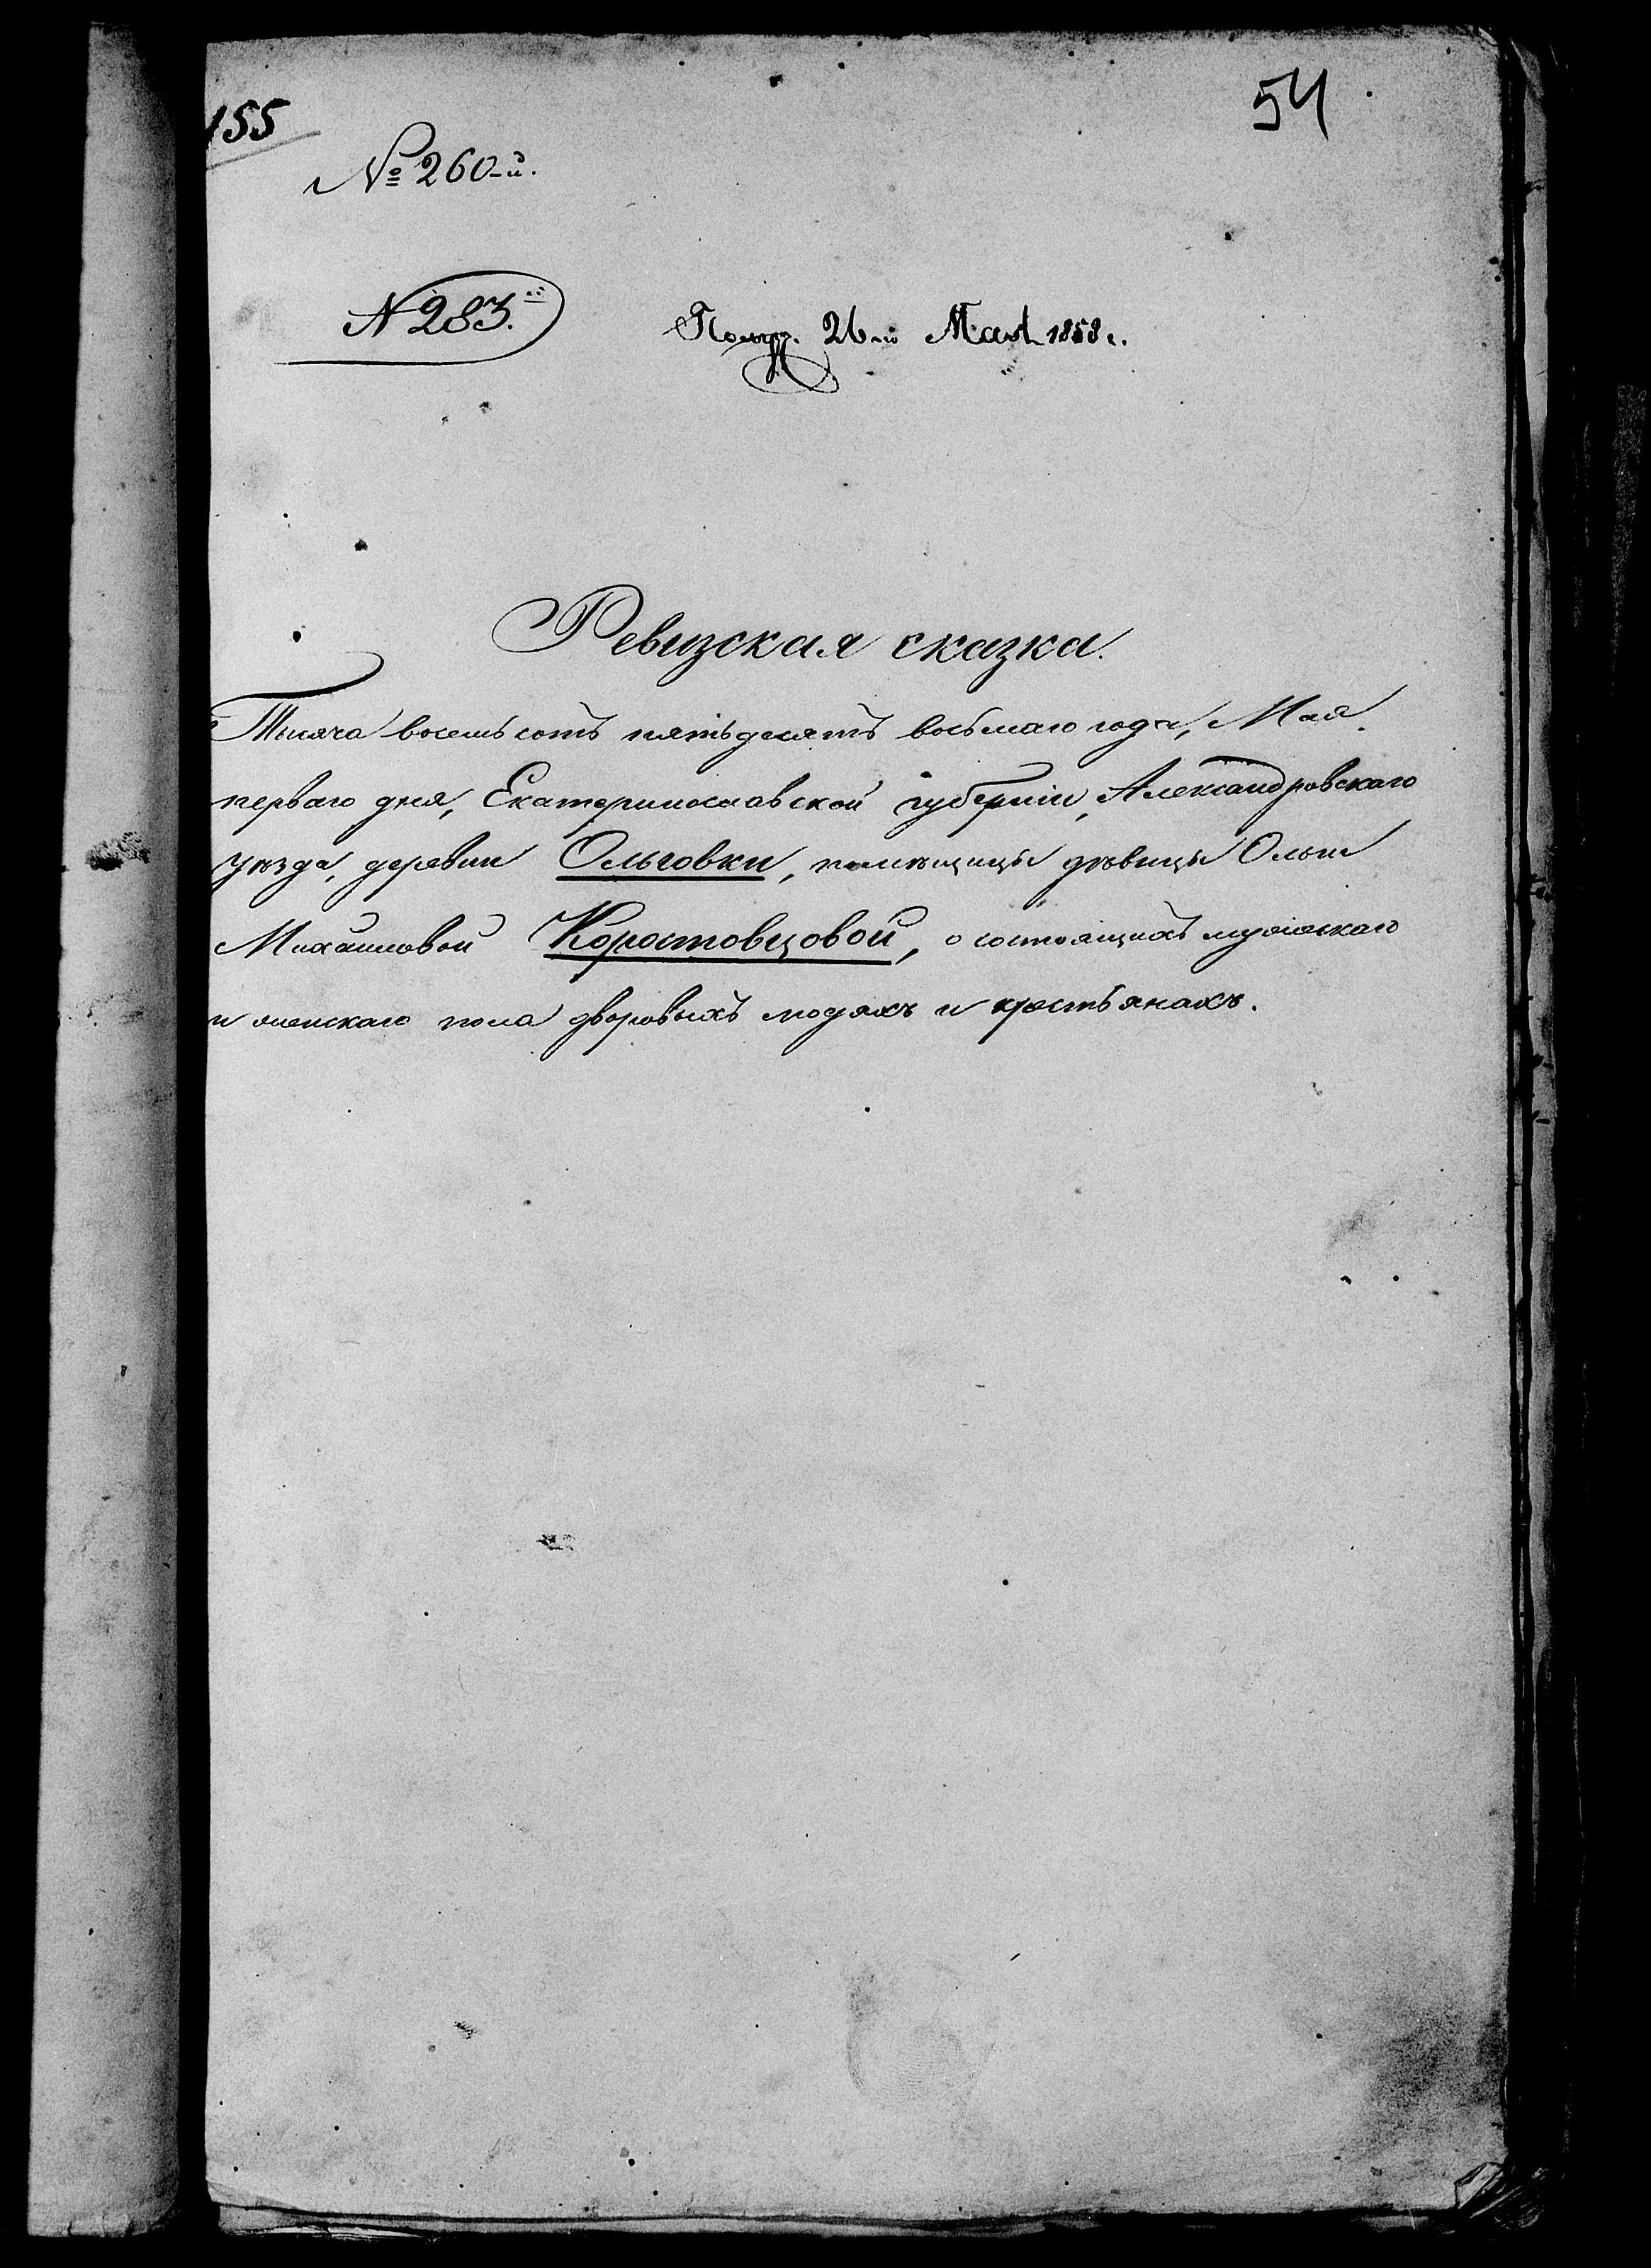 155
54
№ 260-й.
N 283.й
Получ. 26-го Мая 1858 г.
Ревизская сказка.
Тысяча восемь сотъ пятьдесятъ восьмаго года, Мая
перваго дня, Екатеринославской губерніи, Александровскаго
уѣзда, деревни Ольговки, помѣщицы дѣвицы Ольги
Михайловой Коростовцовой, о состоящихъ мужескаго
и женскаго пола дворовыхъ людяхъ и крестьянахъ.